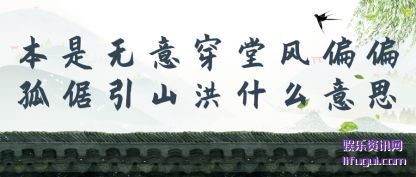 本是无意穿堂风偏偏
孤倨引山洪什么意思
娱乐资讯网
lifugui.com